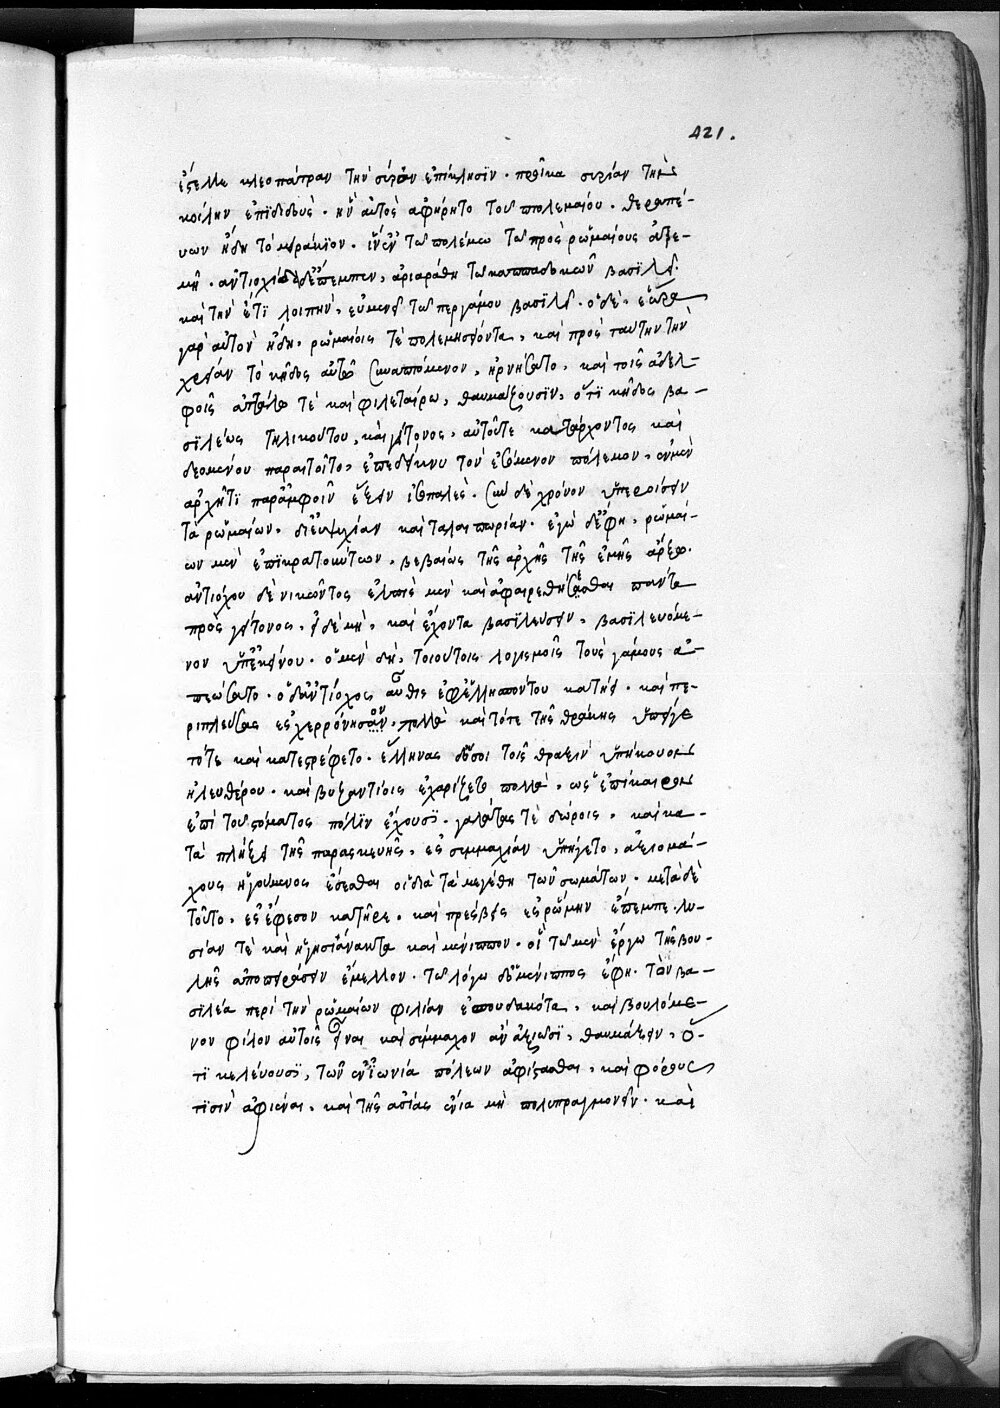 421.
ἔστελλε κλεοπάτραν τὴν σύραν ἐπίκλησϊν· προῖκα συρίαν τὴν
κοίλην ἐπϊδιδοὺς· ἣν αὐτὸς ἀφῄρητο τοῦ πτολεμαίου· θεραπέ-
υων ἤδη τὸ μειράκϊον· ἵν' ἐν τῶ πολέμω τῶ πρὸς ῥωμαίους ἀτρε-
μῆ· ἀντιοχίδα δὲ ἔπεμπεν, ἀριαράθη τῶ καππαδοκῶν βασϊλεῖ·
καὶ τὴν ἔτϊ λοιπὴν, εὐμένει τῶ περγάμου βασϊλεῖ· ὁ δὲ, ἑώρα
γὰρ αὐτὸν ἤδη, ῥωμαίοις τὲ πολεμησείοντα, καὶ πρὸς ταύτην τὴν
χρείαν τὸ κῆδος αὐτῶ συναπτόμενον, ἠρνήσατο, καὶ τοῖς ἀδελ-
φοῖς ἀττάλω τὲ καὶ φιλεταίρω, θαυμάζουσϊν, ὅτϊ κῆδος βα-
σϊλέως τηλικούτου, καὶ γείτονος, αὐτοῦτε κατάρχοντος καὶ
δεομένου παραιτοῖτο, ἐπεδείκνυ τὸν ἐσόμενον πόλεμον, ἐν μὲν
ἀρχῆ τϊ παρ' ἀμφοῖν ἕξειν ἰσοπαλὲς· σὺν δὲ χρόνον ὑπεροίσειν
τὰ ῥωμαίων, δι' εὐψυχίαν καὶ ταλαιπωρίαν· ἐγὼ δ' ἔφη, ῥωμαί-
ων μὲν ἐπϊκρατούντων, βεβαίως τῆς ἀρχῆς τῆς ἐμῆς ἄρξω·
ἀντιόχου δὲ νικῶντος ἐλπὶς μὲν καὶ ἀφαιρεθήσεσθαι πάντα
πρὸς γείτονος, εἰ δὲ μὴ, καὶ ἔχοντα βασϊλεύσειν, βασϊλευόμε-
νον ὑπ' ἐκείνου· ὁ μὲν δὴ, τοιούτοις λογισμοῖς τοὺς γάμους ἀ-
πεώσατο· ὁ δ' ἀντίοχος αὖθις ἐφ' ἑλλησπόντου κατήει· καὶ πε-
ριπλεύσας ἐς χερρόνησον, πολλὰ καὶ τότε τῆς θράκης ὑπήγε
τότε καὶ κατεστρέφετο· ἕλληνας δ' ὅσοι τοῖς θραξὶν ὑπήκουον
ἠλευθέρου· καὶ βυζαντίοις ἐχαρίζετο πολλὰ, ὡς ἐπίκαιρον
ἐπὶ τοῦ στόματος πόλϊν ἔχουσϊ· γαλάτας τὲ δώροις, καὶ κα-
ταπλήξει τῆς παρασκευῆς, ἐς συμμαχίαν ὑπήγετο, ἀξιομά-
χους ἡγούμενος ἔσεσθαι οἱ διὰ τὰ μεγέθη τῶν σωμάτων· μετὰ δὲ
τοῦτο, ἐς ἔφεσον κατῆρε, καὶ πρέσβεις ἐς ῥώμην ἔπεμπε λυ-
σίαν τὲ καὶ ἡγησιάνακτα καὶ μένιππον· οἳ τῶ μὲν ἔργω τῆς βου-
λῆς ἀποπειράσειν ἔμελλον· τῶ λόγω δ' ὁ μένιππος ἔφη· τὸν βα-
σϊλέα περὶ τὴν ῥωμαίων φιλίαν ἐσπουδακότα, καὶ βουλόμε-
νον φίλον αὐτοῖς εἶναι καὶ σύμμαχον ἂν ἀξιῶσϊ, θαυμάζειν, ὅ-
τϊ κελεύουσϊ, τῶν ἐν ἰωνία πόλεων ἀφίστασθαι, καὶ φόρους
τϊσὶν ἀφιέναι, καὶ τῆς ἀσίας ἔνια μὴ πολυπραγμονεῖν· καὶ